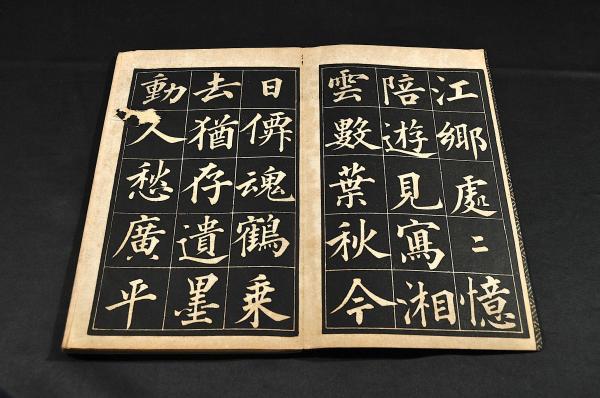 江鄉處〻憶
陪遊見寫湘
雲數葉秋今
日僊魂鶴乗
去猶存遺墨
動人愁廣平